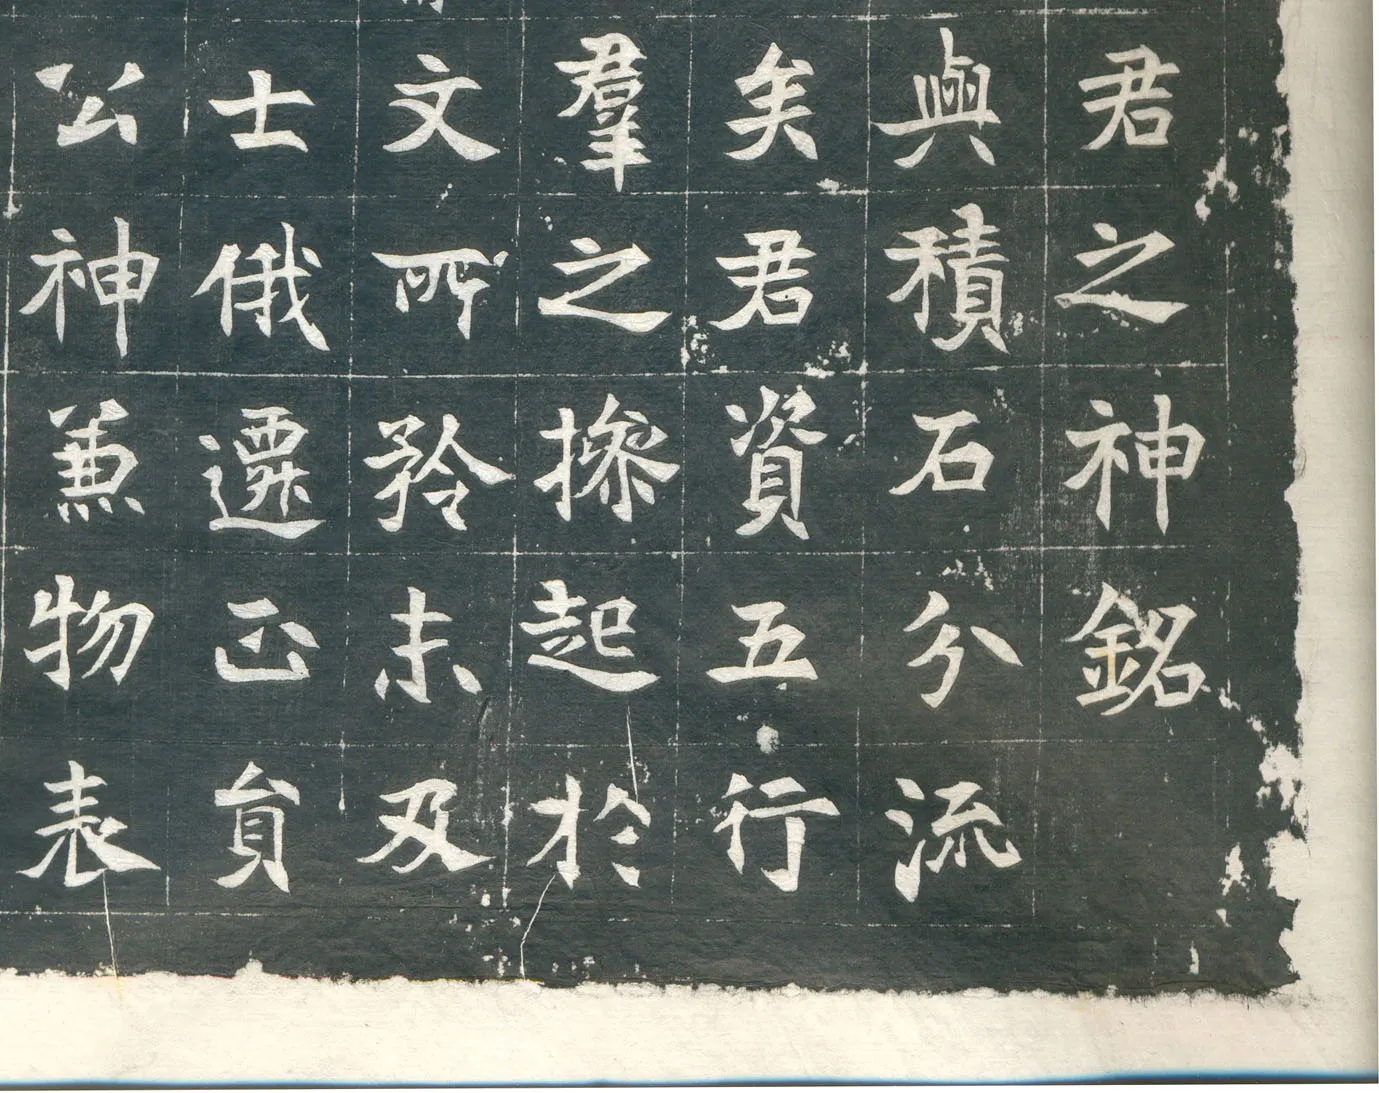 君之神銘
與積石分流
矣君資五行
羣之摻起於
文所矜未及
士俄遷正員
公神兼物表